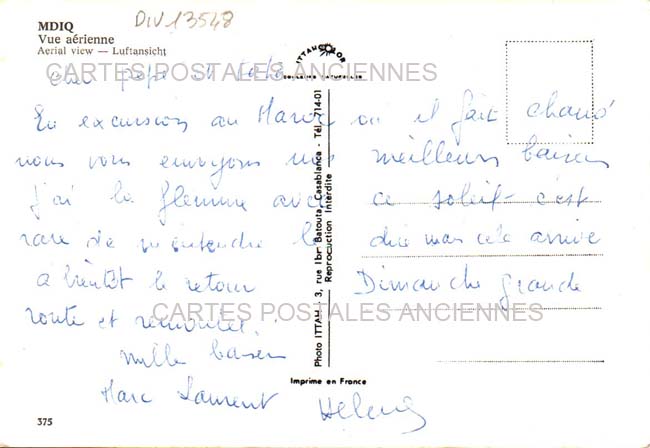 DIV 13548
MDIQ
Vue aérienne
Aerial view — Luftansicht
ITTAHCOLOR
CARTES POSTALES ANCIENNES
Cher pépé et
En excursion au Maroc où il fait chaud
nous vous envoyons nos meilleurs baisers
j'ai la flemme avec ce soleil c'est
rare de m'entendre le dire mais cela arrive
a bientôt le retour Dimanche grande
route et
CARTES POSTALES ANCIENNES
mille baisers
Marc Laurent Hélène
Photo ITTAH, 3, rue Ibn Batouta Casablanca - Tél. 714-01
Reproduction Interdite
Imprime en France
375